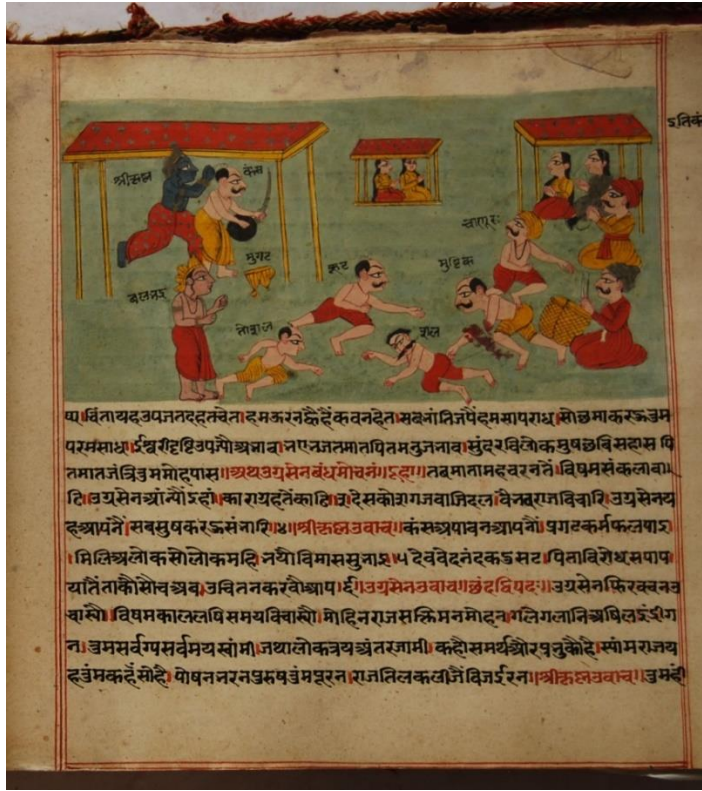 ऽतिकं
श्रीकृष्ण
कंस
चाणूरः
मुगट
कूट
मुष्टिक
बलभद्र
तोशल
शल
प्प।चिंतायहउपजतदहतचेता।हमऊरनह्वैहैंकवनहेत।सबनांतिजपैंहमसापराध।सोछमाकरऊतुम
परमसाध।ईश्वरीदृष्टिउपज्यौअनाव।नएनजतमातपितमनुजनाव।सुंदरविलोकमुषछबिसहास।पि
तमातजंत्रितुममोहपास॥अथउग्रसेनबंधमोचनं॥दोहा॥तबमातामहचरनतैं।विषमसंकलाका
टि।उग्रसेनआंन्यौंऽहां।काराग्रहतैंकाटि।३।देसकोशगजवाजिदल।वैनवराजविचारि।उग्रसेनय
हआपनैं।सबसुषकरऊसंनारि।४॥श्रीकृष्णउवाच॥कंसअपावनआपनौं।प्रगटकर्मफलपाऽ
।मिलिअलोकसौलोकमहि।नयौविमाससुनाऽ।५देववेदनंदकऽसट।पिताविरोधसपाप
यातैंताकौसोचअब।उचितनकरवौआप।६॥उग्रसेनउवाच॥छंदद्विपदः॥उग्रसेनफिरवचनउ
चास्यौ।विषमकाललषिसमयविचास्यौ।मोहिनराजसक्तिमनमोहन।गलेगलानिअषिल
न।तुमसर्वग्यसर्वमयस्वांमी।जथालोकत्रयअंतरजामी।कहौसमर्थऔरप्रनुकौहै।स्यांमराजय
हतुंमकहँसोहै।पोषननरनपुरुषतुंमपूरन।राजतिलककीजैंद्विजऽरन॥श्रीकृष्णउवाच॥तुमहीं